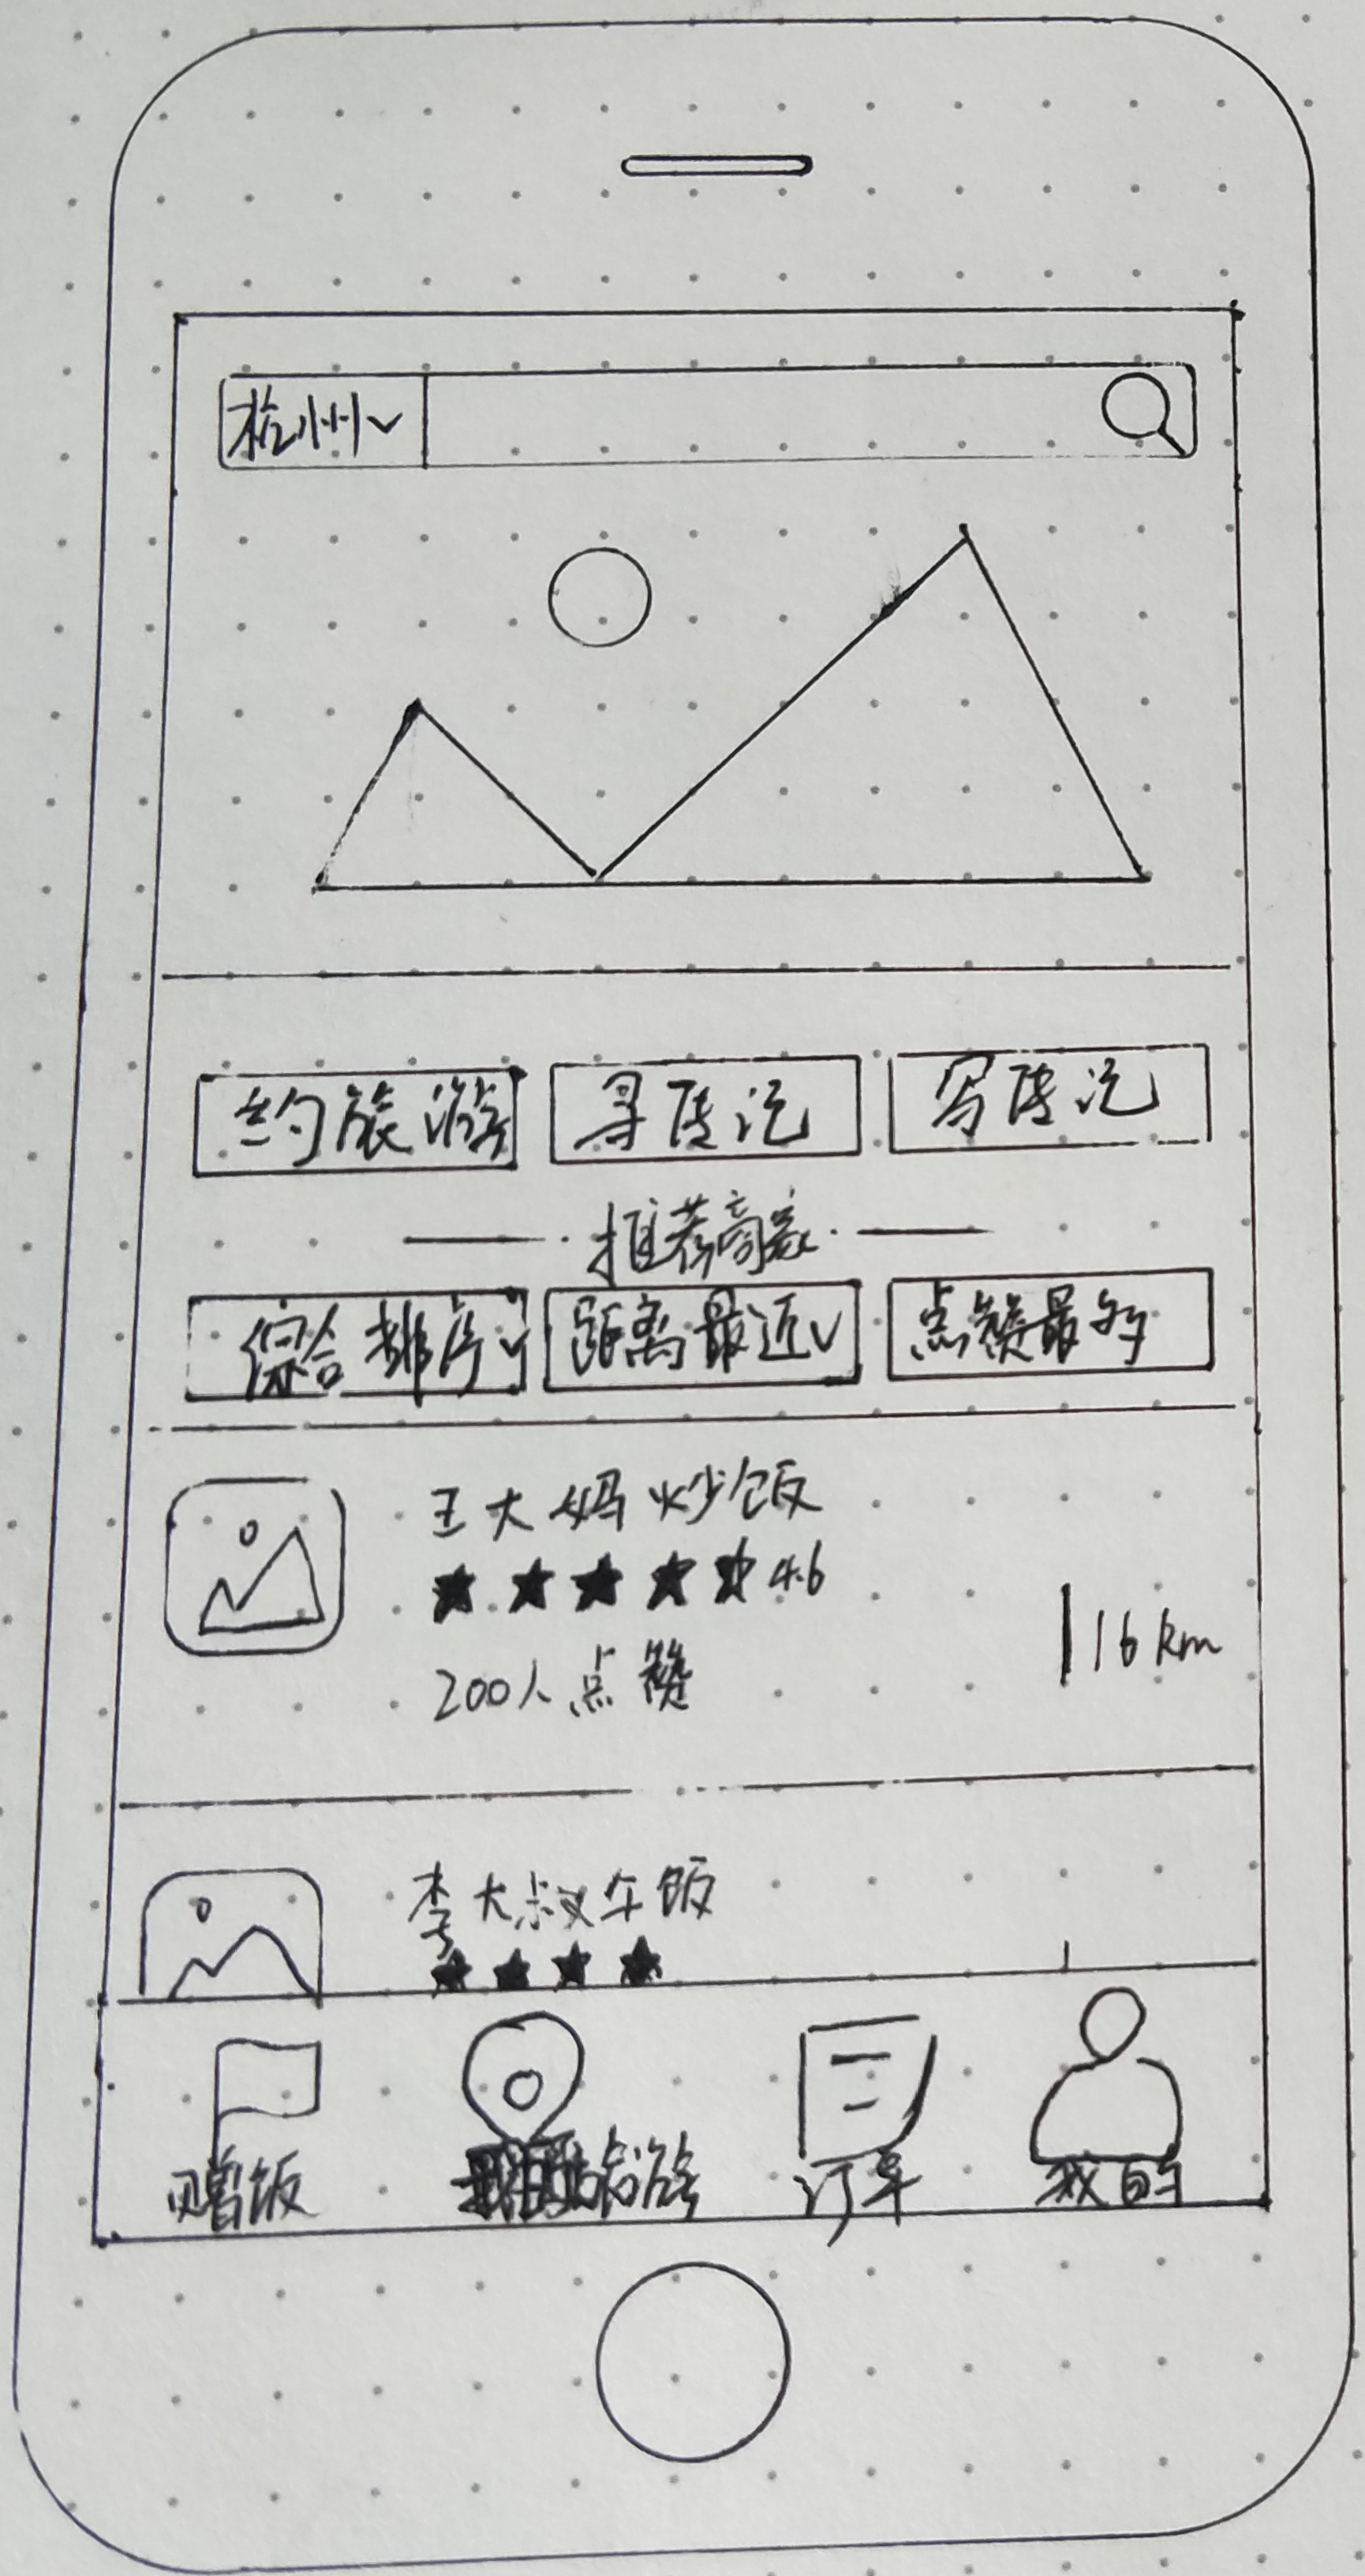 杭州
约旅游 寻传记 写传记
推荐商家
综合排序 距离最近 点赞最多
王大妈炒饭
4.6
200人点赞
16km
李大叔午饭
赠饭 订单 我的